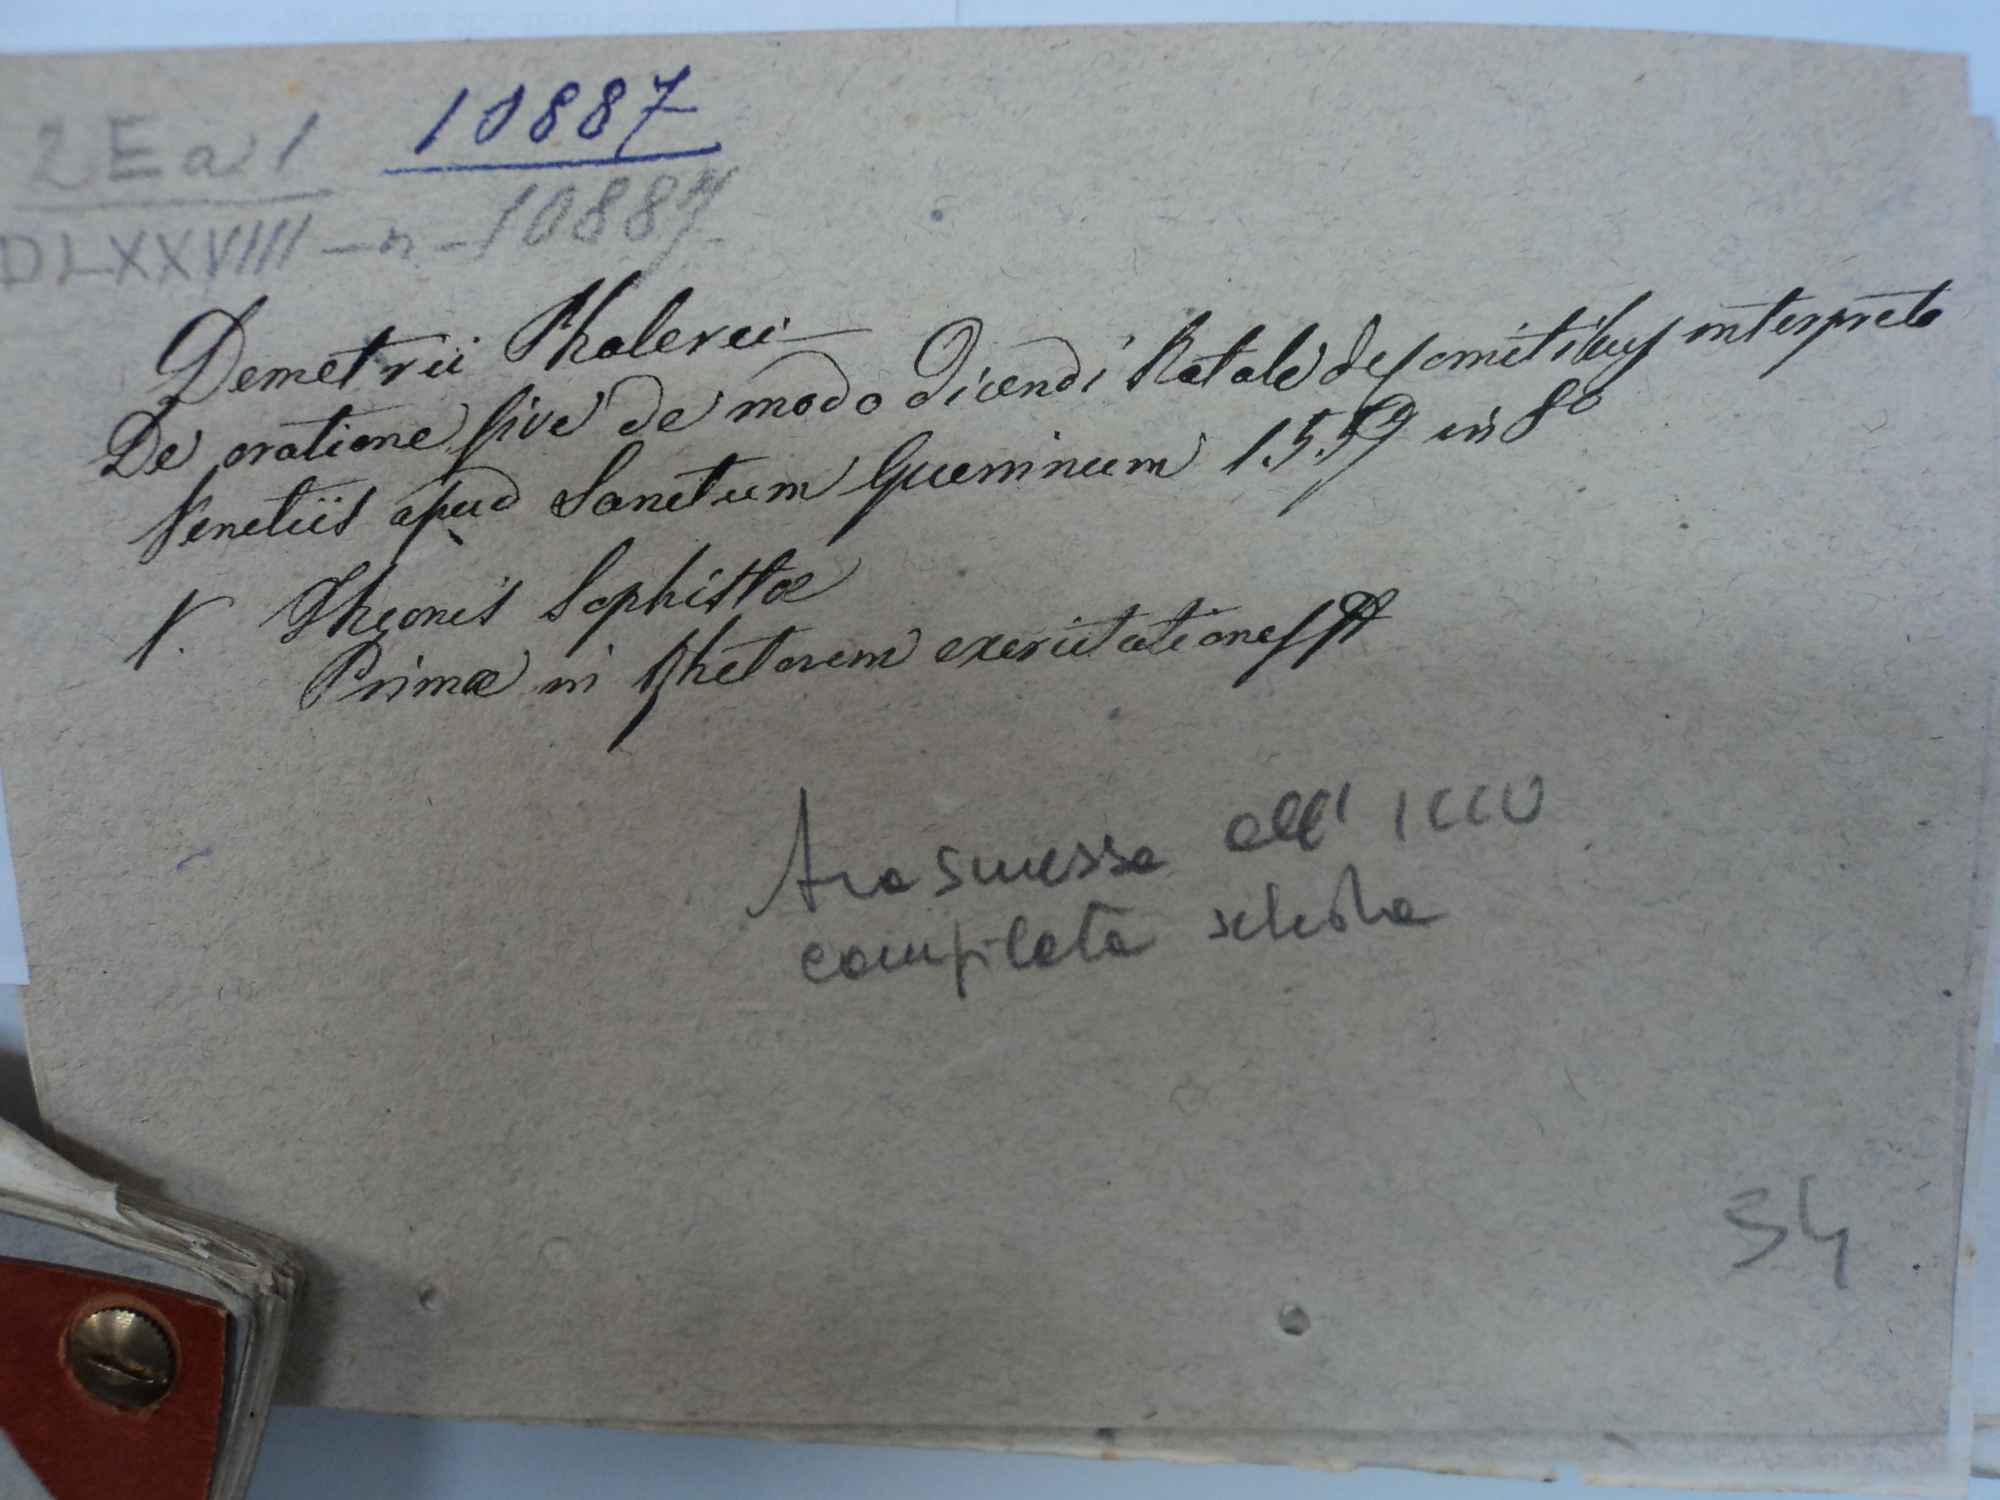 2 E a 1 10887
DLXXVIII - n - 10887
Demetrii Phalerei
De oratione sive de modo dicendi Natale de comitibus interprete
Venetiis apud Sanctum Gueninum 1559 in 8º
V. Theonis Sophistæ
Primæ in Rhetorem exercitationes
trasmessa all' ICCU
compilata scheda
34